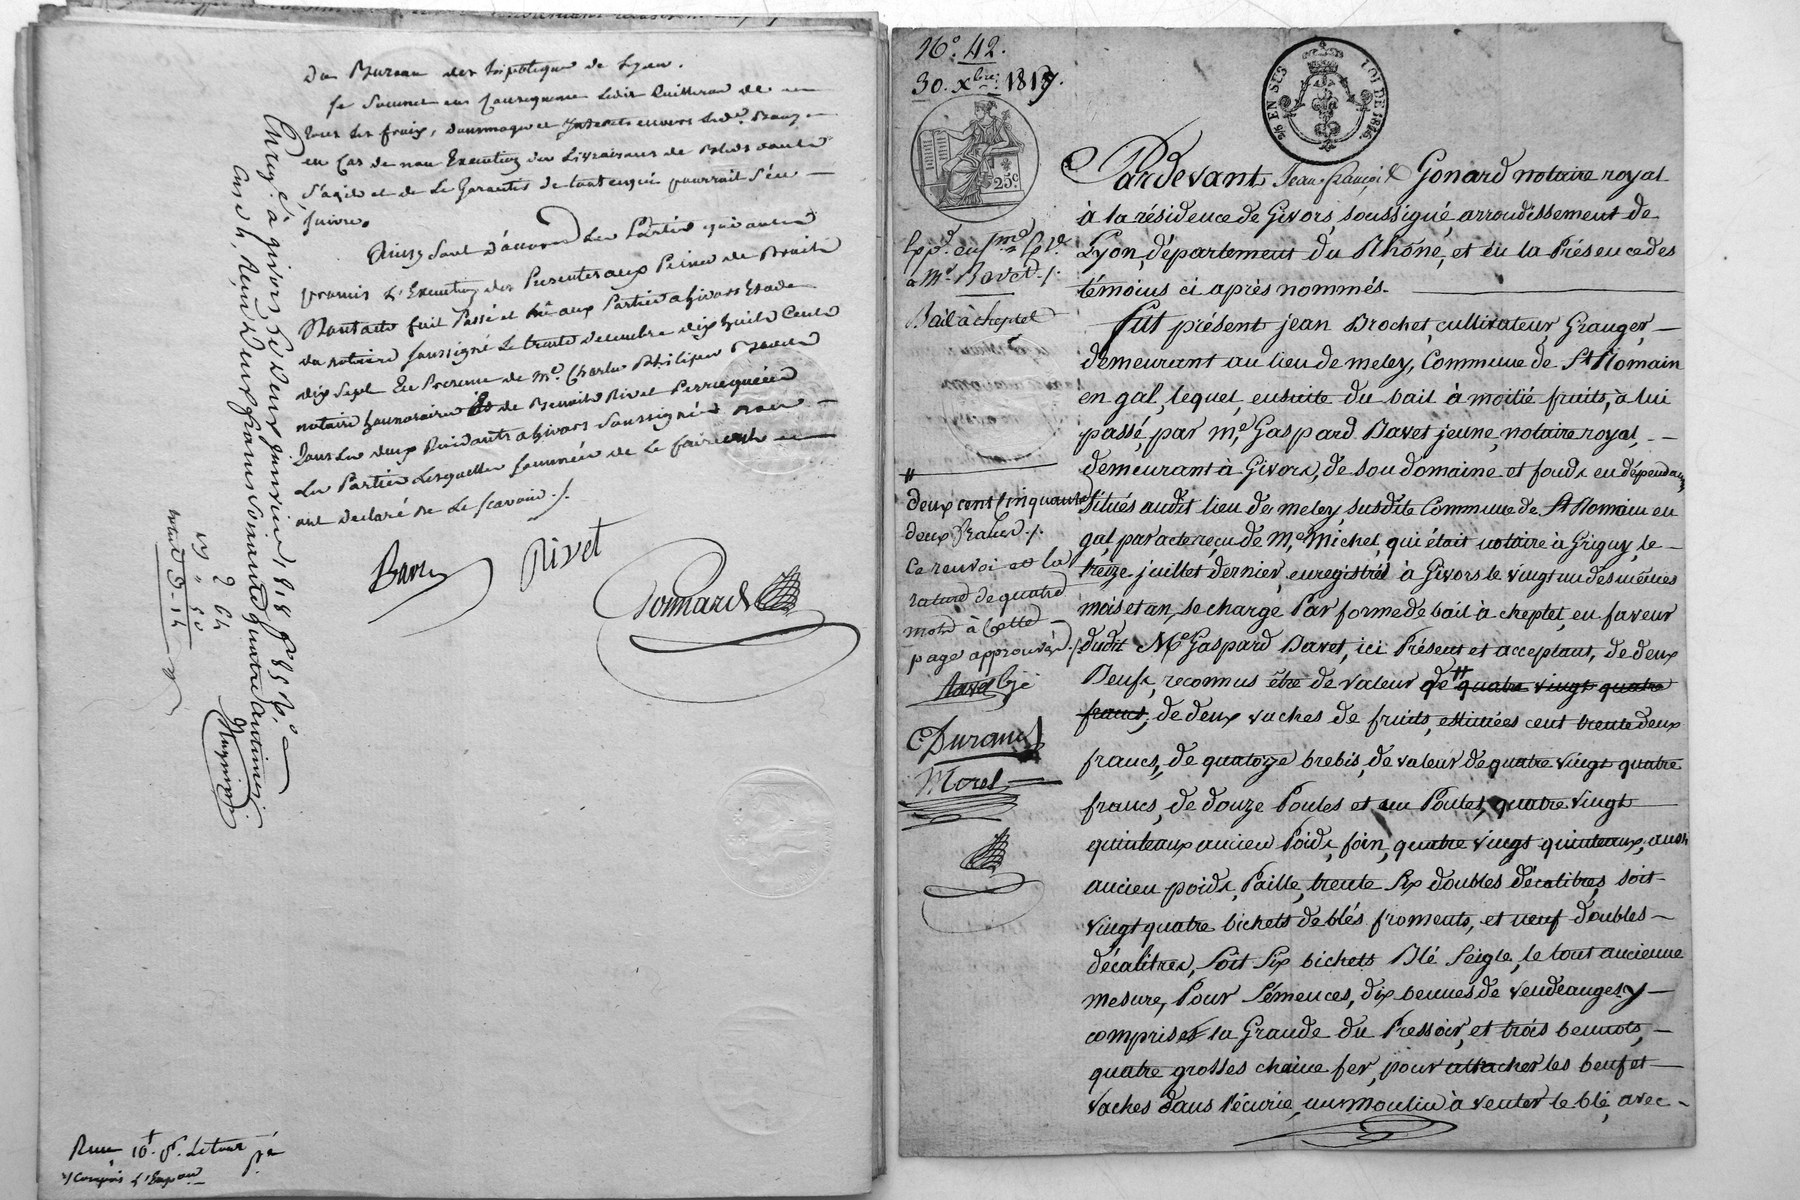 du Bureau des hipotèques de Lyon.
Se soumet en Conséquence ledit Quilleron de
tous les frais, dommages et Interets envers led.
en Cas de non Execution des Livraisons de Bleds dont
s'agit et de le Garantir de tout ce qui pourrait s'en
suivre.
Ainsy sont d'accord les Parties qui ont
promis l'Execution des Presentes aux Peines de Droit
dont acte fait Passé et lû aux Parties a Givors Etude
du notaire soussigné le trente decembre dix huit Cent
dix Sept En Presence de Me. Charles Philipe
notaire honnoraire Et de Benoit Rivet Perruquier
Tous les deux Residants a Givors soussignés non
les Parties lesquelles sommées de le faire
ont declaré ne le scavoir ./.
Rivet
Gonnard
Enreg.é à givors le deux janvier 1818 f.o 85 V.o
Case 4, Reçu deux francs soixante quatre centimes
2 64
N.o 42.
30. Xbre. 1817.
EN SUS
LOI DE 1816.
25 c
à Me. Bavet ./.
Bail à cheptel
Pardevant Jean-françois Gonard notaire royal
à la résidence de Givors, soussigné, arroudissement de
Lyon, département du Rhône, et en la Présence des
témoins ci après nommés.
Fut présent jean Brochet, cultivateur, Granger,
demeurant au lieu de meley, Commune de St Romain
en gal, lequel, ensuite du bail à moitié fruits, à lui
passé, par me. Gaspard Bavet jeune, notaire royal,
demeurant à Givors, de son domaine et fonds en dépendant
situés audit lieu de meley, susdite Commune de St Romain en
gal, par acte reçu de Me. Michel, qui était notaire à Grigny, le
treize juillet dernier, enregistré à Givors le vingt un des mêmes
mois et an, se charge Par forme de bail à cheptel, en faveur
dudit Me Gaspard Bavet, ici Présent et acceptant, de deux
Beufs, reconnus être de valeur de quatre vingt quatre
francs, de deux vaches de fruits, estimées cent trente deux
francs, de quatorze brebis, de valeur de quatre vingt quatre
francs, de douze Poules et un Poulet, quatre vingt
quinteaux ancien Poids, foin, quatre vingt quinteaux, aussi
ancien poids, Paille, trente Six doubles décalitres, soit
vingt quatre bichets de blés froments, et neuf doubles
décalitres, soit Six bichets Blé Seigle, le tout ancienne
mesure, Pour Sémences, dix bennes de vendanges, y
compris la Grande du Pressoir, et trois bennots,
quatre grosses chaine fer, pour attacher les beuf et
vaches dans l'écurie, un moulin à venter le blé, avec
deux cent cinquante
deux francs ./.
Ce renvoi et la
rature de quatre
mots à cette
page approuvés ./.
C. Durand
Morel